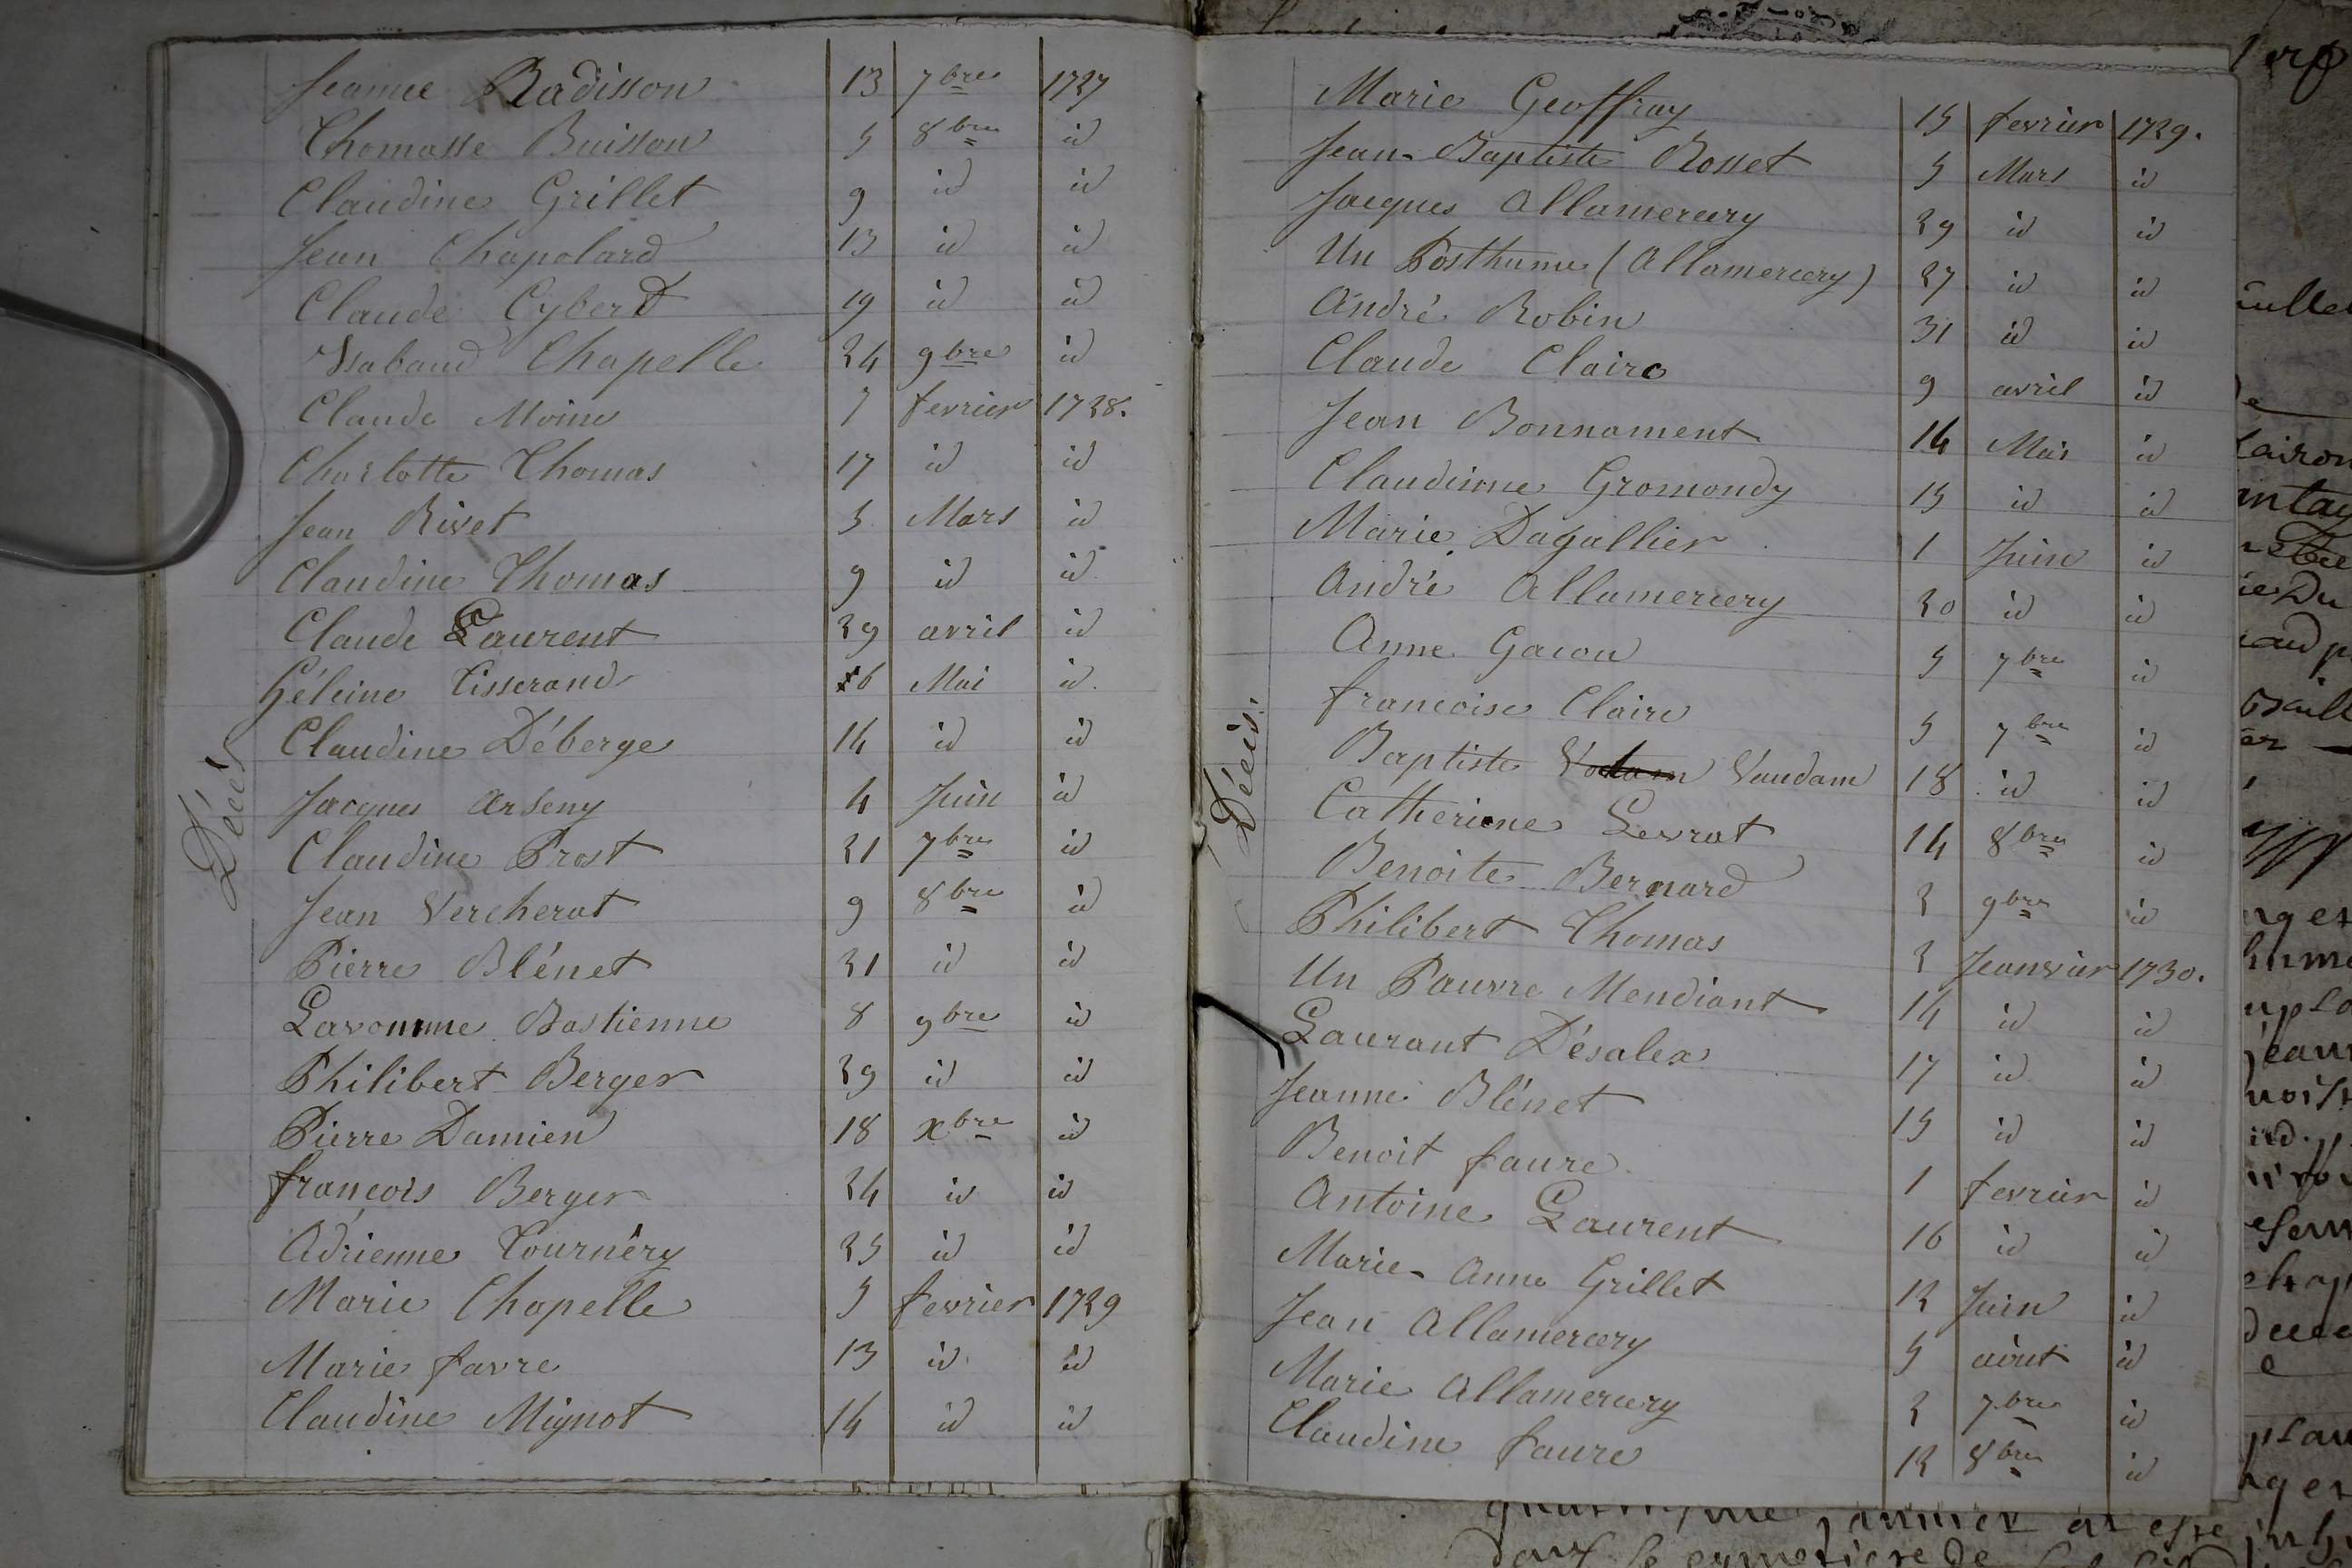 Décès
Jeanne Radisson 13 7bre 1727
Thomasse Buisson 5 8bre id
Claudine Grillet 9 id id
Jean Chapolard 13 id id
Claude Cybert 19 id id
Isabaud Chapelle 24 9bre id
Claude Moine 7 fevrier 1728.
Charlotte Thomas 17 id id
Jean Rivet 5 Mars id
Claudine Thomas 9 id id
Claude Laurent 29 avril id
Héleine Tisserand 6 Mai id
Claudine Déberge 14 id id
Jacques Arseny 4 Juin id
Claudine Prost 21 7bre id
Jean Vercherat 9 8bre id
Pierre Blénet 21 id id
Lavomme Bastienne 8 9bre id
Philibert Berger 29 id id
Pierre Damien 18 xbre id
françois Berger 24 id id
Adrienne Tournéry 25 id id
Marie Chapelle 5 fevrier 1729
Marie favre 13 id id
Claudine Mignot 14 id id
Décès.
Marie Geoffray 15 fevrier 1729.
Jean-Baptiste Rosset 5 Mars id
Jacques Allamercery 29 id id
Un Posthume (Allamercery) 27 id id
André Robin 31 id id
Claude Claire 9 avril id
Jean Bonnament 14 Mai id
Claudinne Gromondy 15 id id
Marie Dagallier 1 Juin id
André Allamercery 20 id id
Anne Gacon 5 7bre id
francoise Claire 5 7bre id
Baptiste Vodam Vaudam 18 id id
Catherine Levrat 14 8bre id
Benoite Bernard 2 9bre id
Philibert Thomas 2 Jeanvier 1730.
Un Pauvre Mendiant 14 id id
Laurant Désalex 17 id id
Jeanne Blénet 15 id id
Benoit faure 1 fevrier id
Antoine Laurent 16 id id
Marie-Anne Grillet 12 Juin id
Jean Allamercery 5 août id
Marie Allamercery 2 7bre id
Claudine faure 12 8bre id